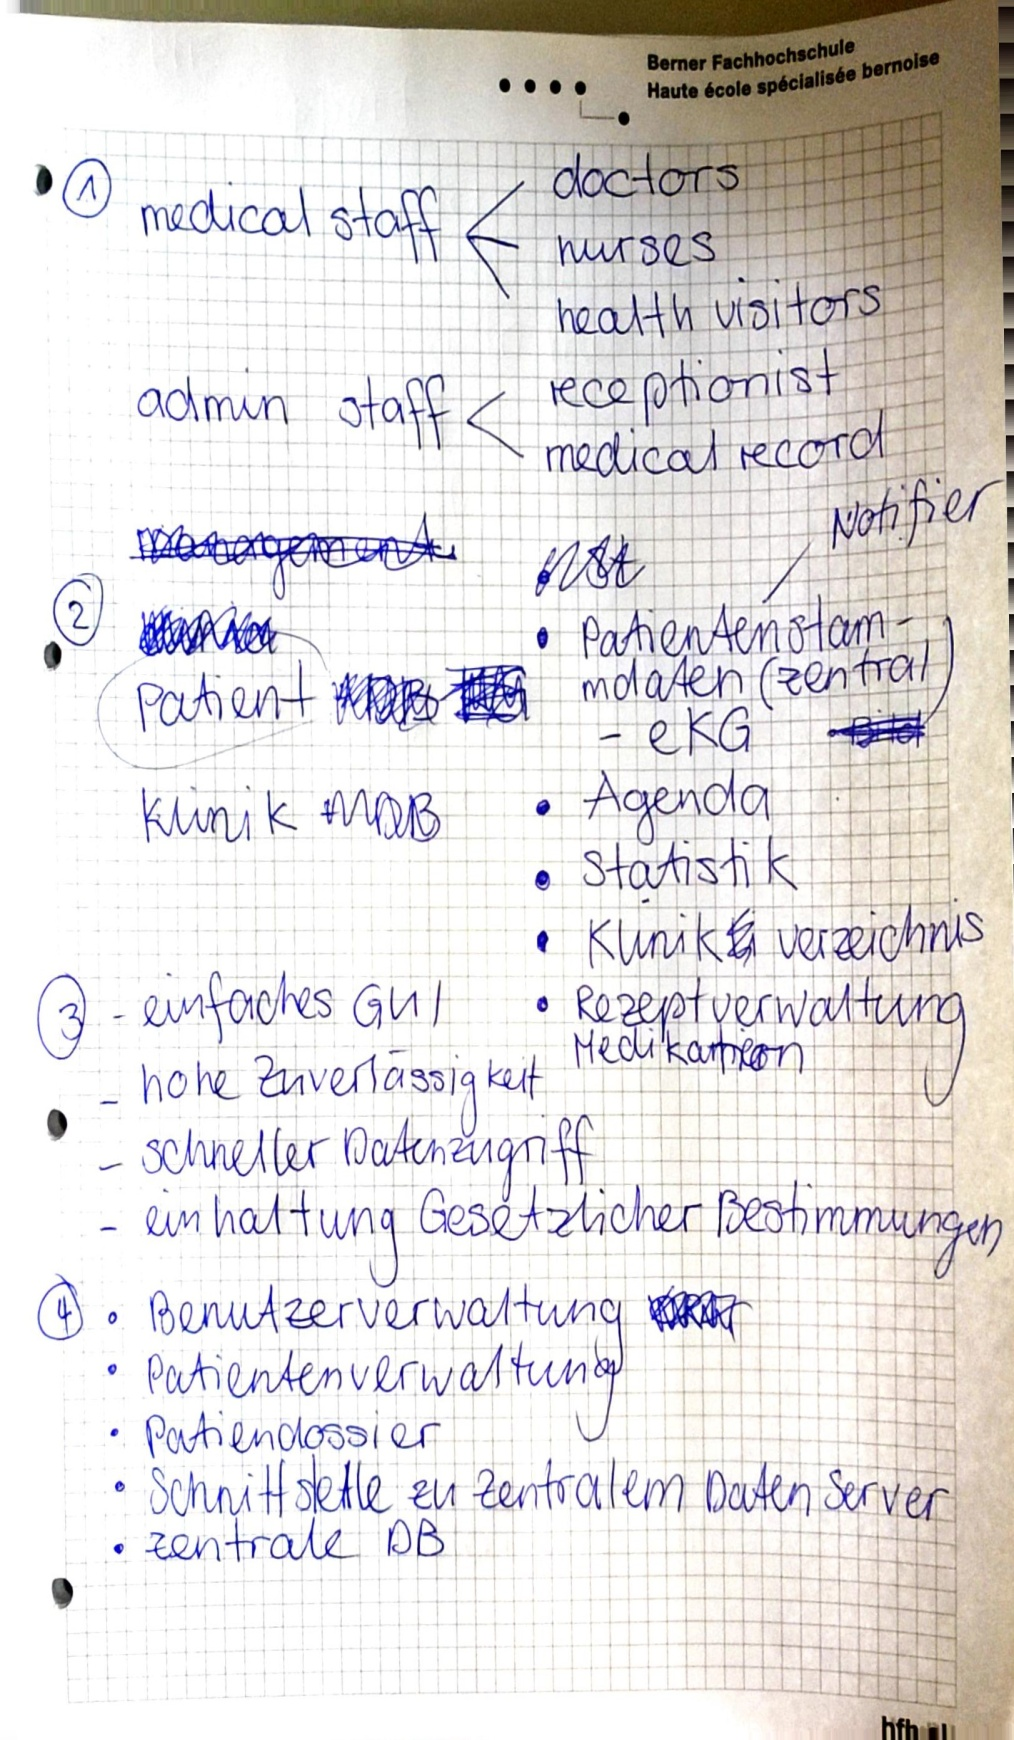 Berner Fachhochschule
Haute école spécialisée bernoise
1
medical staff
doctors
nurses
health visitors
admin staff
receptionist
medical record
management
Notifier
2
Patientenstam-
Patient
mdaten (zentral)
- eKG
Klinik MDB
Agenda
Statistik
Klinik verzeichnis
3
- einfaches GUI
Rezeptverwaltung
Medikation
- hohe Zuverlässigkeit
- schneller Datenzugriff
- einhaltung Gesetzlicher Bestimmungen
4
• Benutzerverwaltung
• Patientenverwaltung
• Patiendossier
• Schnittstelle zu zentralem Daten Server
• zentrale DB
bfh